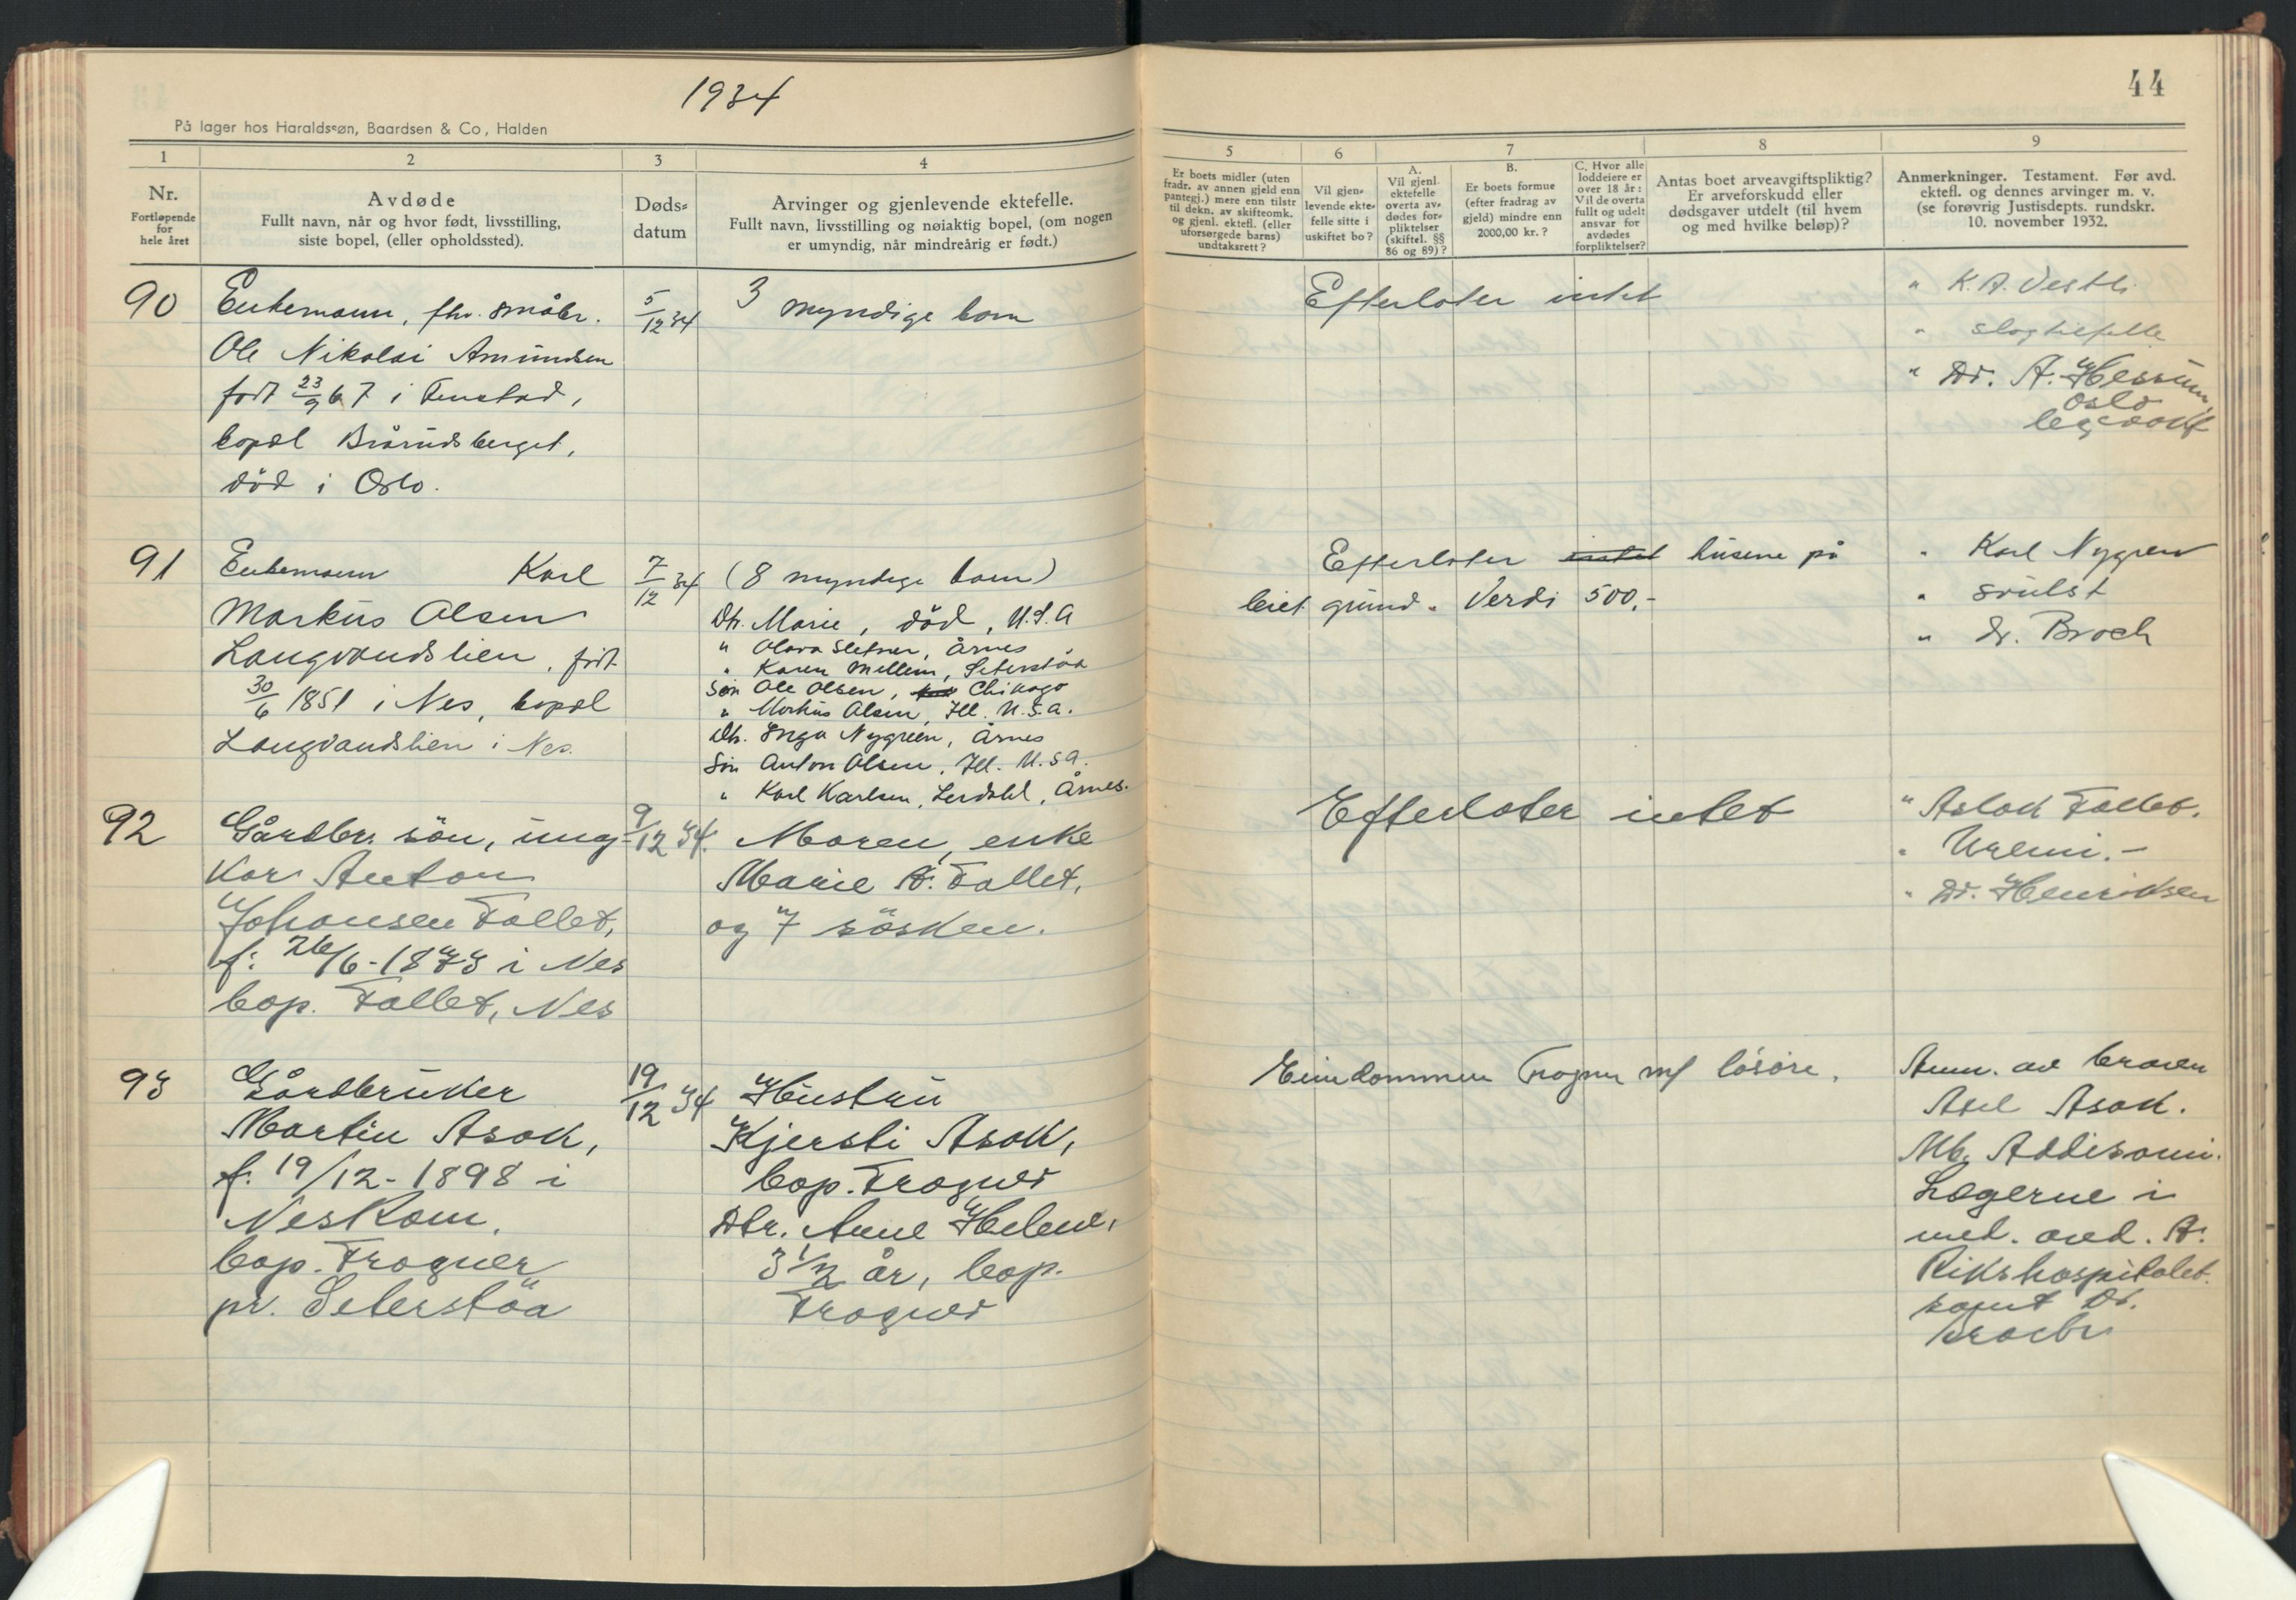 1934
44
På lager hos Haraldssøn, Baardsen & Co, Halden
1
2
3
4
5
6
7
8
9
Nr.
Fortløpende
for
hele året
Avdøde
Fullt navn, når og hvor født, livsstilling,
siste bopel, (eller opholdssted).
Døds-
datum
Arvinger og gjenlevende ektefelle.
Fullt navn, livsstilling og nøiaktig bopel, (om nogen
er umyndig, når mindreårig er født.)
Er boets midler (uten
fradr. av annen gjeld enn
pantegj.) mere enn tilstr
til dekn. av skifteomk.
og gjenl. ektefl. (eller
uforsørgede barns)
undtaksrett?
Vil gjen-
levende ekte-
felle sitte i
uskiftet bo?
A.
Vil gjenl.
ektefelle
overta av-
dødes for-
pliktelser
(skiftel. §§
86 og 89)?
B.
Er boets formue
(efter fradrag av
gjeld) mindre enn
2000,00 kr.?
C. Hvor alle
loddeiere er
over 18 år:
Vil de overta
fullt og udelt
ansvar for
avdødes
forpliktelser?
Antas boet arveavgiftspliktig?
Er arveforskudd eller
dødsgaver utdelt (til hvem
og med hvilke beløp)?
Anmerkninger. Testament. Før avd.
ektefl. og dennes arvinger m. v.
(se forøvrig Justisdepts. rundskr.
10. november 1932.
90
Enkemann, fhv. småbr.
Ole Nikolai Amundsen
født 23/9 67 i Fenstad,
bopæl Brårudsberget,
död i Oslo.
5/12 34
3 myndige barn
Efterlater intet
" K. A. Vestli
" slagtilfelle
" Dr. A. Hessum,
Oslo
legevakt
91
Enkemann Karl
Markus Olsen
Langvandslien, født
30/6 1851 i Nes, bopæl
Langvandslien i Nes.
7/12 34
(8 myndige barn)
Dtr. Marie, död, U.S.A
" Olava Sletner, Årnes
" Karen Mellem, Seterstöa
Sön Ole Olsen, Chikago
" Markus Olsen, Ill. U.S.a.
Dtr. Inga Nygreen, Årnes
Sön Anton Olsen, Ill. U.S.A.
" Karl Karlsen, Lerdahl, Årnes.
Efterlater intet husene på
leiet grund. Verdi 500,-
" Karl Nygren
" svulst
" dr. Broch
92
Gårdbr. sön, ung-
kar Anton
Johansen Fallet,
f: 26/6-1873 i Nes
bop. Fallet, Nes
9/12 34.
Moren, enke
Marie A. Fallet,
og 7 sösken.
Efterlater intet
" Aslak Fallet.
" Uremi.-
" Dr. Henriksen
93
Gårdbruker
Martin Asak,
f. 19/12-1898 i
Nes kom.
bop. Frogner
pr. Seterstöa
19/12 34
Hustru
Kjersti Asak,
bop. Frogner
Dtr. Anne Helene,
3 1/2 år, bop.
Frogner
Eiendommen Frogner m/ lösöre.
Anm. av broren
Axel Asak.
Mb. Addisoni.
Lægerne i
med. avd. A.
Rikshospitalet.
samt Dr.
Broch